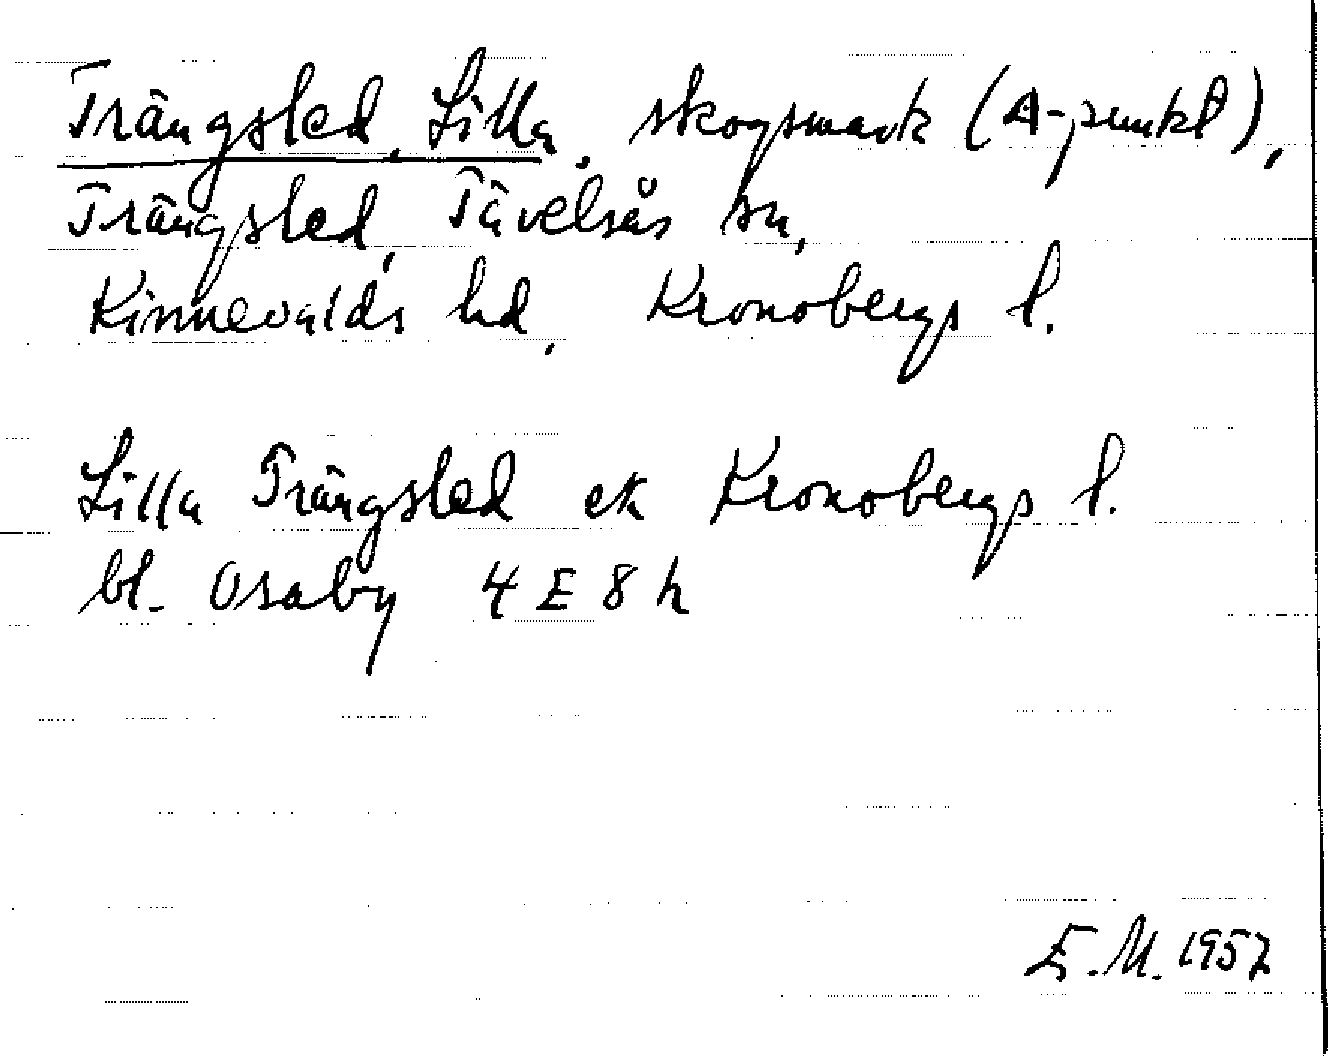 Trängsled, Lilla, skogsmark (A-punkt),
Trängsled, Tävelsås sn,
Kinnevalds hd, Kronobergs l.
Lilla Trängsled ek Kronobergs l.
bl. Osaby 4 E 8 h
E.M. 1957